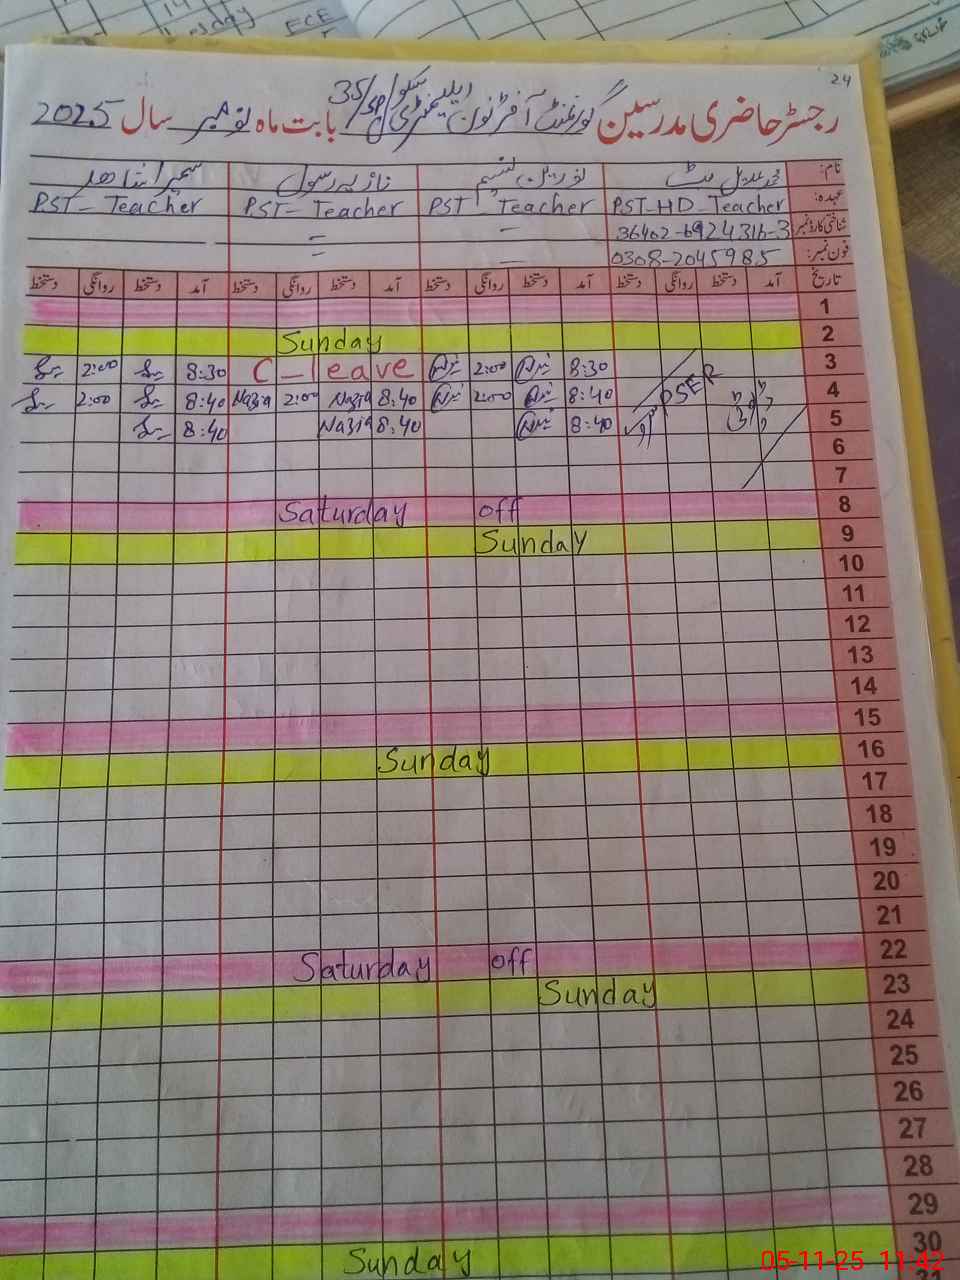 24
رجسٹر حاضری مدرسین گورنمنٹ آفٹرنون ایلیمنٹری سکول 35/SP بابت ماہ نومبر سال 2025
نام: نورین نسیم نازیہ رسول سمیرا
عہدہ: PST-HD-Teacher PST-Teacher PST-Teacher PST-Teacher
شناختی کارڈ نمبر 36402-6924316-3 - =
فون نمبر: 0308-2045985 - =
تاریخ آمد دستخط روانگی دستخط آمد دستخط روانگی دستخط آمد دستخط روانگی دستخط آمد دستخط روانگی دستخط
1
Sunday 2
2:00 8:30 C-leave 2:00 8:30 3
2:00 8:40 Nazia 2:00 Nazia 8:40 2:00 8:40 PSER 4
8:40 Nazia 8:40 8:40 5
6
7
Saturday off 8
Sunday 9
10
11
12
13
14
15
Sunday 16
17
18
19
20
21
Saturday off 22
Sunday 23
24
25
26
27
28
29
Sunday 30
31
05-11-25 11:42